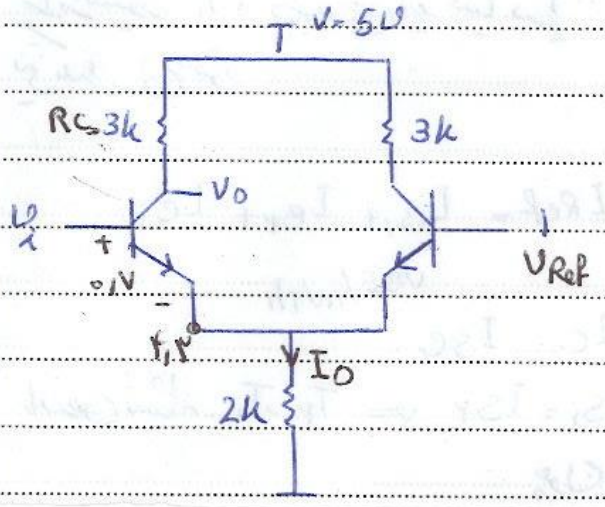 V=5V
RC=3k
3k
Vo
Vi
+
۰,۷
-
VRef
۴,۳
Io
2k